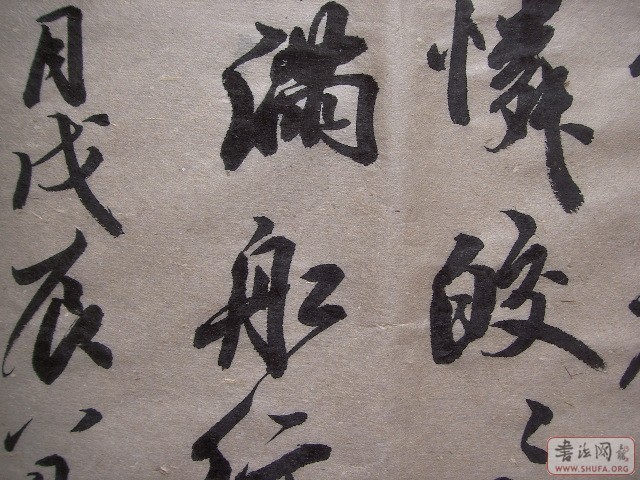 憐皎〻
滿船行
月戊辰八月
书法网
WWW.SHUFA.ORG